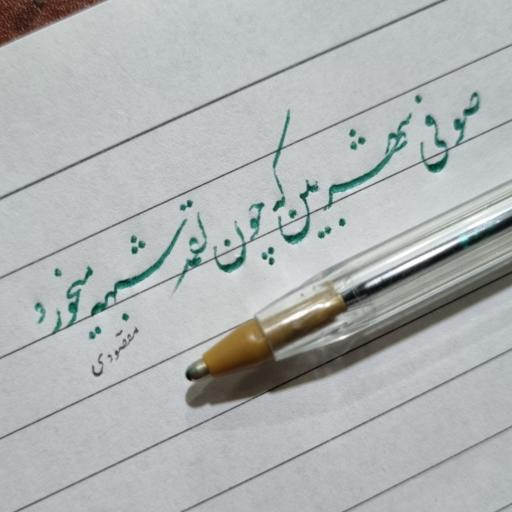 صوفی شهر بین که چون لقمه شبهه میخورد
مقصودی